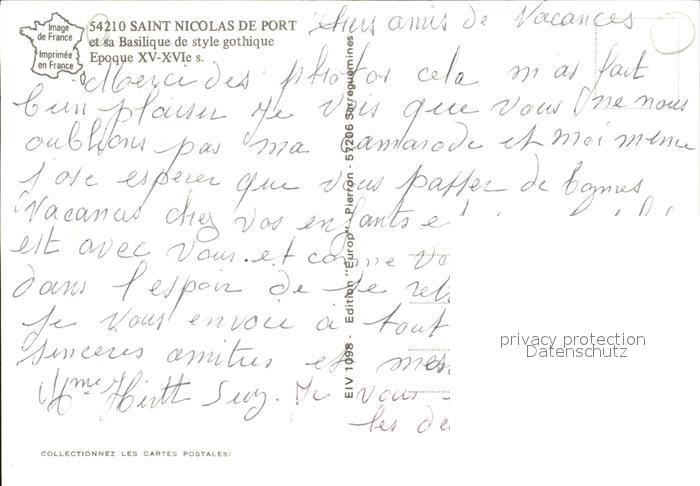 Image
de France
Imprimée
en France
54210 SAINT NICOLAS DE PORT
et sa Basilique de style gothique
Epoque XV-XVIe s.
Chers amis de Vacances
Merci des photos cela m as fait
bien plaisir Je vois que vous ne nous
oublions pas ma Camarade et moi meme
j ose esperer que vous passer de bonnes
Vacances chez vos enfants e
est avec vous. et comme vo
dans l espoir de se
Je vous envoie à tout
sinceres amities et mes
Mme Hirtt Suz. Je vous
les de
EIV 1098 - Edition "Europ" - Pierron - 57206 Sarreguemines
privacy protection
Datenschutz
COLLECTIONNEZ LES CARTES POSTALES!